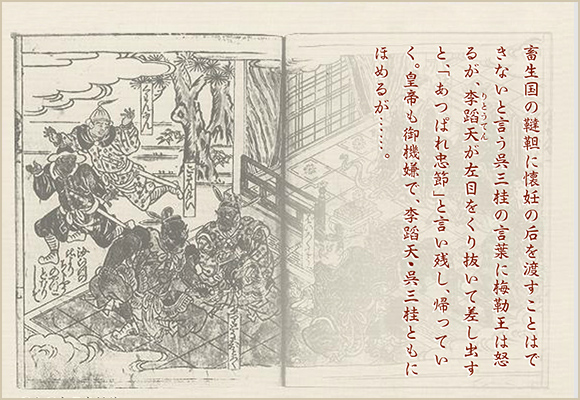 畜生国の韃靼に懐妊の后を渡すことはで
きないと言う呉三桂の言葉に梅勒王は怒
るが、李蹈天が左目をくり抜いて差し出す
りとうてん
と、「あっぱれ忠節」と言い残し、帰ってい
く。皇帝も御機嫌で、李蹈天・呉三桂ともに
ほめるが……。